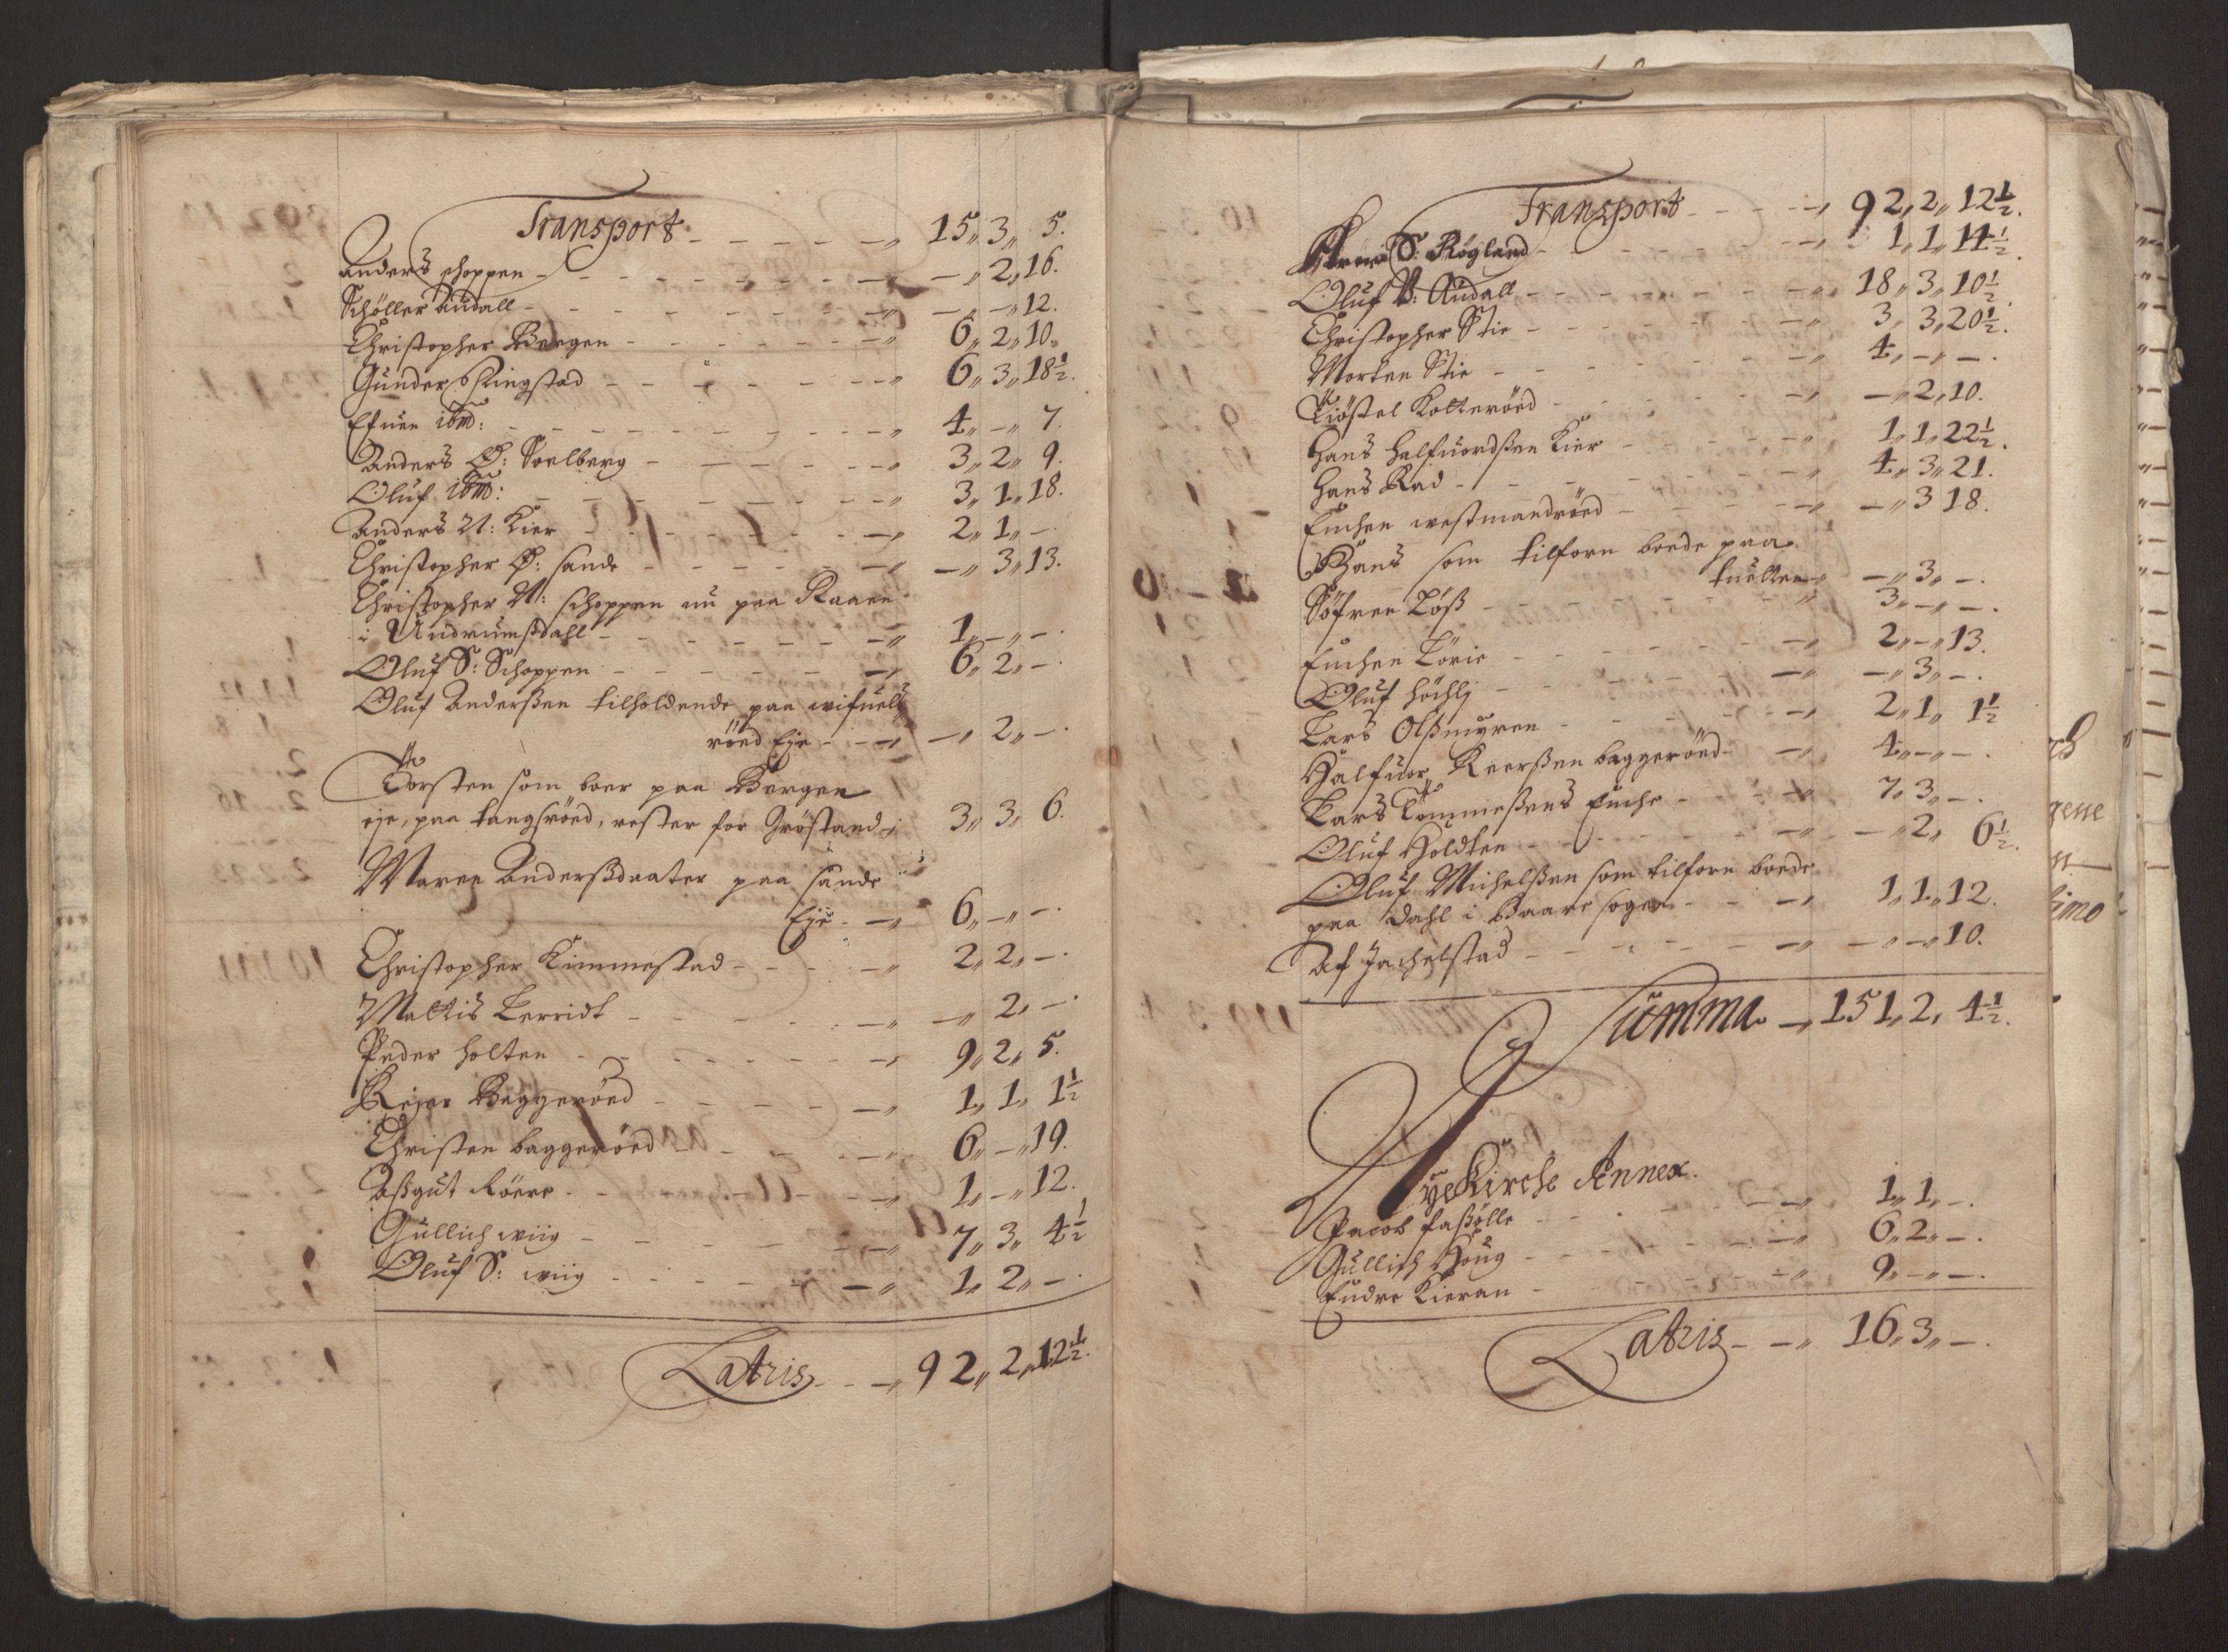 Transport - - - - - -„ 15„ 3„ 5.
Anders schoppen - - - - - - - -„ -„ 2„ 16.
Schöller Audall - - - - - - - -„ -„ -„ 12.
Christopher Bergen - - - - - -„ 6„ 2„ 10.
Gunder Ringstad - - - - - -„ 6„ 3„ 18½.
Efuen ibm: - - - - - - - -„ 4„ -„ 7.
Anders Ø: Soelberg - - - - -„ 3„ 2„ 9.
Oluf ibm: - - - - - - - -„ 3„ 1„ 18.
Anders N: Kier - - - - - - -„ 2„ 1„ -
Christopher Ø: sande - - - - - -„ -„ 3„ 13.
Christopher N: schoppen nu paa Raaen
i Undrumßdahl - - - - - -„ 1„ -„ -.
Oluf S: Schoppen - - - - - -„ 6„ 2„ -.
Oluf Anderßen tilholdende paa wifuels
röed Eje - - -„ -„ 2„ -.
Torsten som boer paa Bergen
eje, paa langsröed, rester for Gröstand„ 3„ 3„ 6.
Maren Anderßdaater paa sande
Eje - -„ 6„ -„ -.
Christopher Kimmestad - - - -„ 2„ 2„ -.
Mattis Lerridt - - - - - -„ -„ 2„ -.
Peder holten - - - - - - -„ 9„ 2„ 5.
Rejer Baggeröed - - - - -„ 1„ 1„ 1½
Christen baggeröed - - - - -„ 6„ -„ 19.
Aßgut Röere - - - - - - -„ 1„ -„ 12.
Gullich wiig - - - - - - -„ 7„ 3„ 4½
Oluf S: wiig - - - - - - -„ 1„ 2„ -.
Latris - - -„ 92„ 2„ 12½.
Transport - - - -„ 92„ 2„ 12½.
S: Rögland - - - - - - -„ 1„ 1„ 11½.
Oluf V: Audall - - - - - - -„ 18„ 3„ 10½.
Christopher Stie - - - - - -„ 3„ 3„ 20½.
Morten Stie - - - - - - -„ 4„ -„ -.
Tiöstel Kolteröed - - - - - -„ -„ 2„ 10.
Hans halfuordßen Kier - - - - -„ 1„ 1„ 22½.
Hans Rad - - - - - - - -„ 4„ 3„ 21.
Enchen westmandröed - - - - -„ -„ 3 18.
Hans som tilforn boede paa
tuelten„ -„ 3„ -.
Söfren Löß - - - - - - -„ 3„ -„ -.
Enchen Lörie - - - - - - -„ 2„ -„ 13.
Oluf höchli - - - - - - -„ -„ 3„ -.
Lars Olßmyren - - - - - -„ 2„ 1„ 1½
Halfuor Reerßen baggeröed - -„ 4„ -„ -.
Lars Tommeßens Enche - - - -„ 7„ 3„ -.
Oluf Holdten - - - - - - -„ -„ 2„ 6½.
Oluf Michelßen som tilforn boede
paa Dahl i Baare sogen - - -„ 1„ 1„ 12.
Af Jachelstad - - - - - - -„ -„ -„ 10.
Summa -„ 151„ 2„ 4½.
NyeKirche Annex.
Jacob faßölle - - - - - -„ 1„ 1„ -.
Gullich Houg - - - - - - -„ 6„ 2„ -.
Endre Kieran - - - - - - -„ 9„ -„ -.
Latris - -„ 16„ 3„ -.